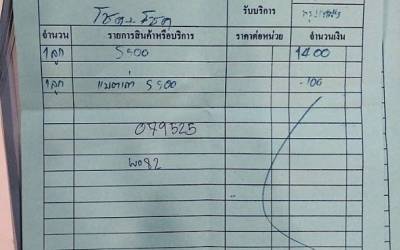 รับบริการ
จำนวน รายการสินค้าหรือบริการ ราคาต่อหน่วย จำนวนเงิน
1 ลูก S500 1400
1 ลูก แบตเก่า S500 -100
079525
พอ82